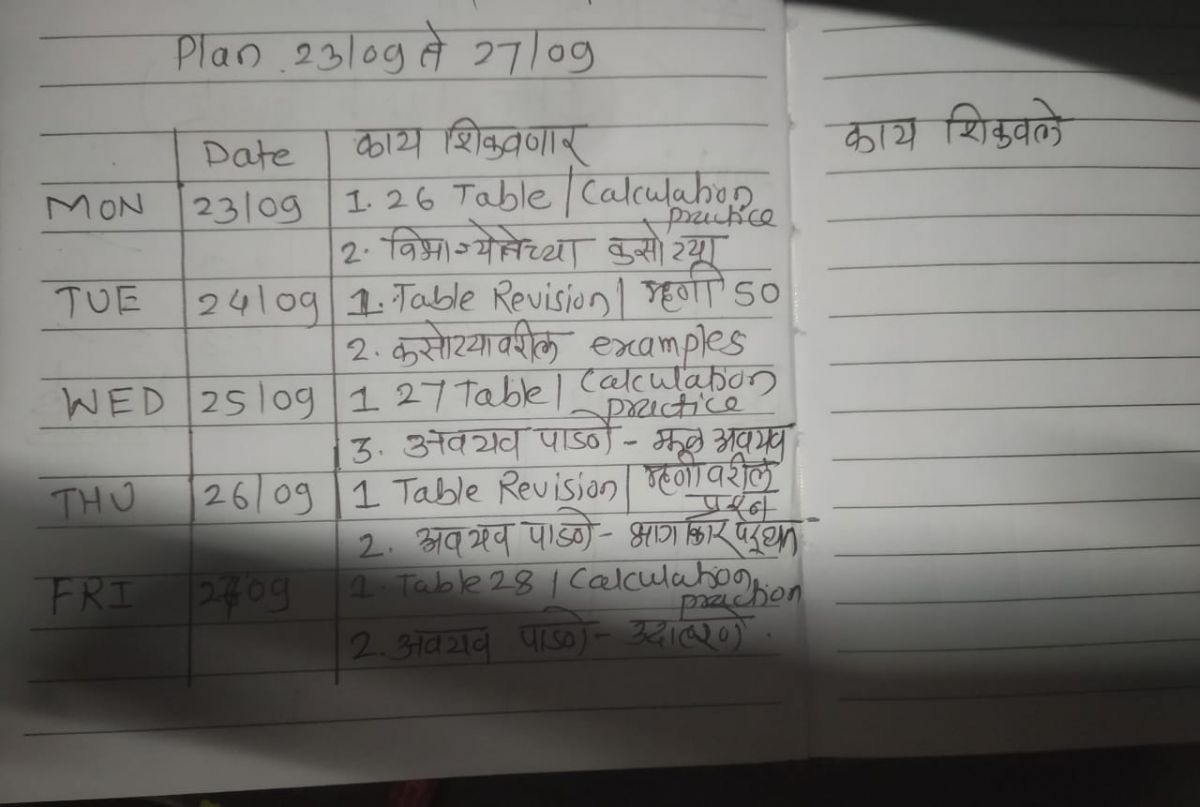 Plan 23/09 ते 27/09
Date काय शिकवणार
काय शिकवले
MON 23/09 1. 26 Table / Calculation practice
2. विभाज्येतेच्या कसोट्या
TUE 24/09 1. Table Revision / म्हणी 50
2. कसोट्यावरील examples
WED 25/09 1 27 Table / Calculation practice
3. अवयव पाडणे - मूळ अवयव
THU 26/09 1 Table Revision / म्हणीवरील प्रश्न
2. अवयव पाडणे - भागाकार पद्धत
FRI 27/09 1. Table 28 / Calculation
2. अवयव पाडणे - उदाहरणे.